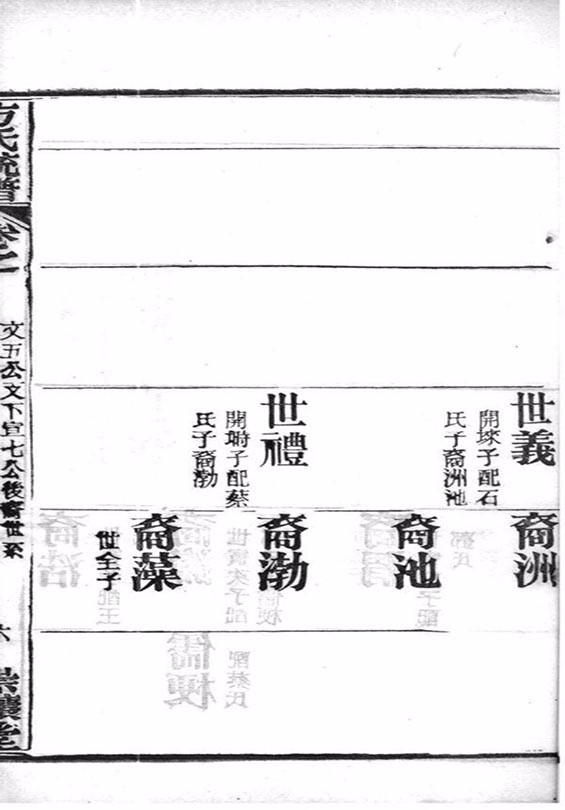 世義
開埰子配石
氏子裔洲池
世禮
開埘子配蔡
氏子裔渤
裔洲
裔池
裔渤
裔藻
世全子
方氏統譜
卷之
文五公文下宣七公後裔世系
六